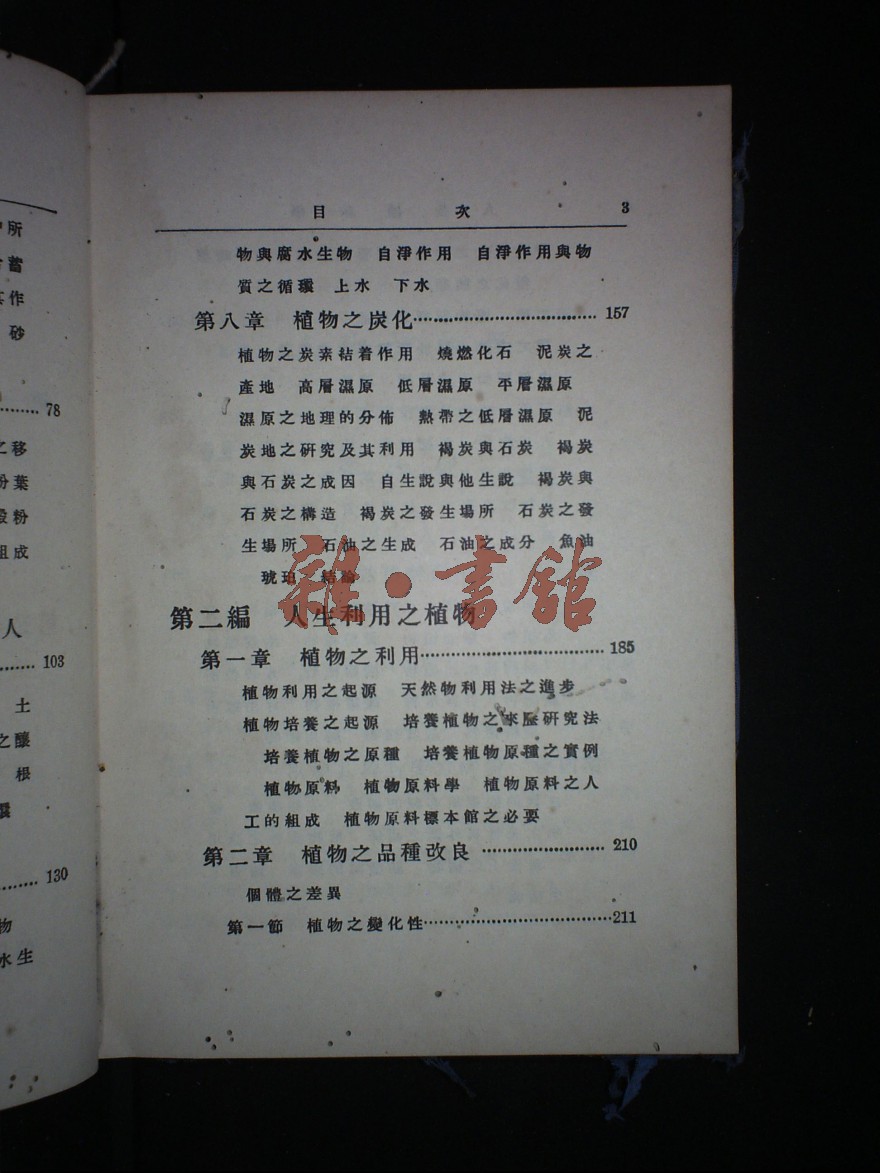 中所
蓄
其作
砂
………78
之移
粉葉
殺粉
組成
人
……… 103
土
之釀
根
……… 130
物
水生
目 次 3
物與腐水生物 自淨作用 自淨作用與物
質之循環 上水 下水
第八章 植物之炭化……………………………… 157
植物之炭素粘着作用 燒燃化石 泥炭之
產地 高層濕原 低層濕原 平層濕原
濕原之地理的分佈 熱帶之低層濕原 泥
炭地之研究及其利用 褐炭與石炭 褐炭
與石炭之成因 自生說與他生說 褐炭與
石炭之構造 褐炭之發生場所 石炭之發
生場所 石油之生成 石油之成分 魚油
琥珀 結論
第二編 人生利用之植物
第一章 植物之利用……………………………… 185
植物利用之起源 天然物利用法之進步
植物培養之起源 培養植物之來歷研究法
培養植物之原種 培養植物原種之實例
植物原料 植物原料學 植物原料之人
工的組成 植物原料標本館之必要
第二章 植物之品種改良 …………………… 210
個體之差異
第一節 植物之變化性………………………………211
雜·書館